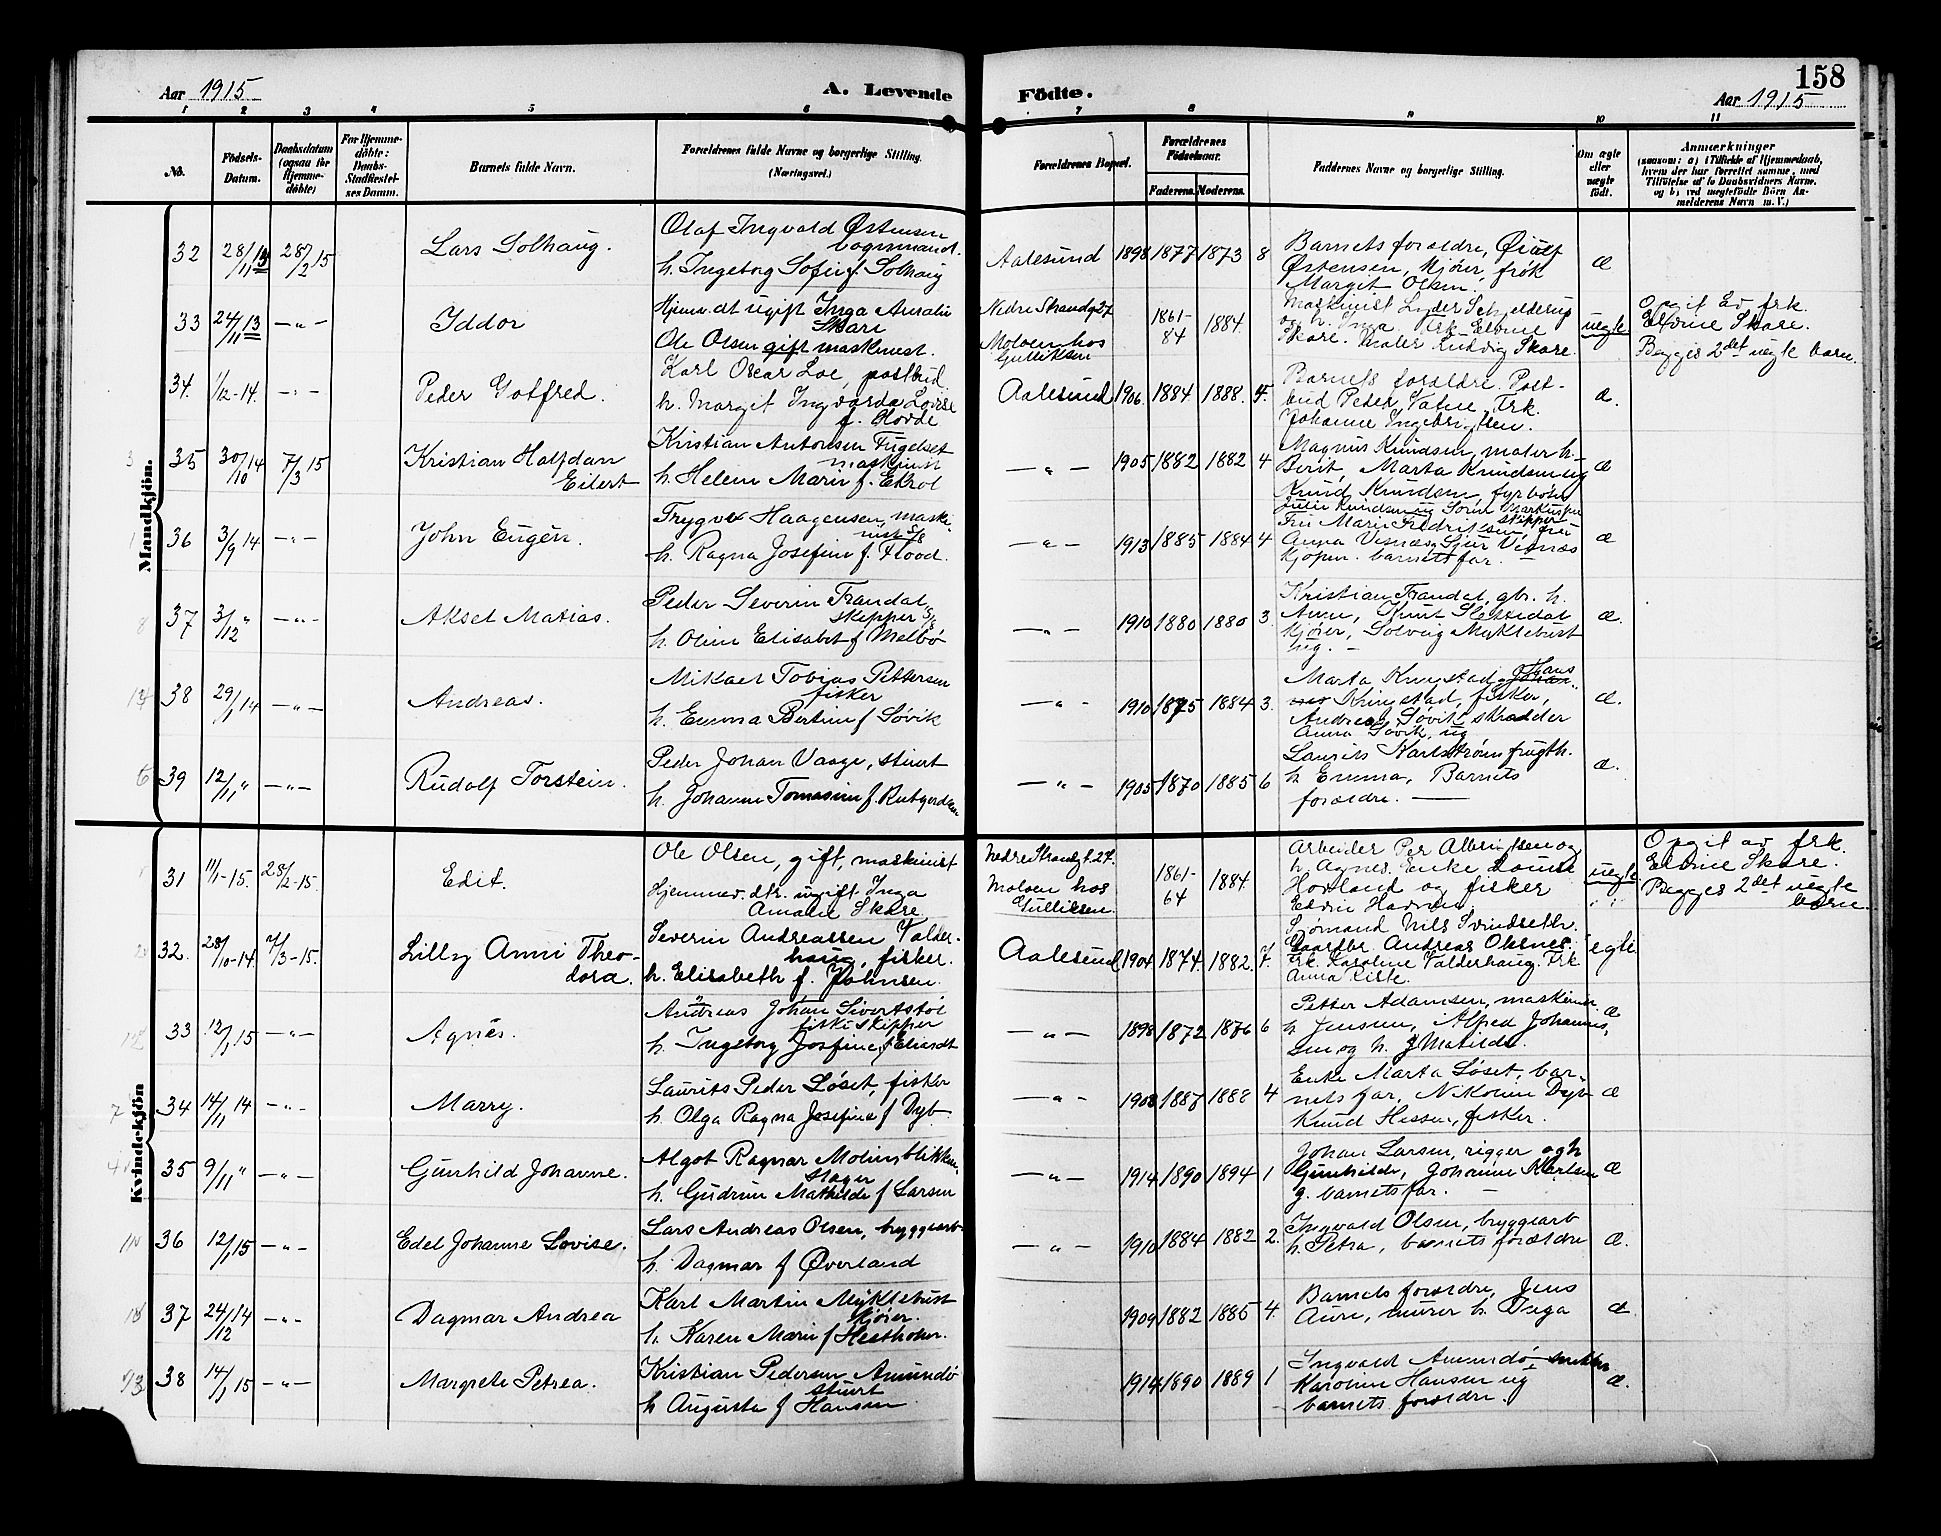 158
Aar 1915
A. Levende
Födte.
Aar 1915
1 2 3 4 5 6 7 8 9 10 11
No.
Födsels-Datum.
Daabsdatum (ogsaa for Hjemme-döbte)
For Hjemme-döbte: Daabs-Stadfæstel-ses Datum.
Barnets fulde Navn.
Forældrenes fulde Navne og borgerlige Stilling. (Næringsvei.)
Forældrenes Bopæl.
Forældrenes Födselsaar.
Faderens. Moderens.
Faddernes Navne og borgerlige Stilling.
Om ægte eller uægte födt.
Anmærkninger
(saasom: a) i Tilfælde af Hjemmedaab,
hvem der har forrettet samme, med
Tilföielse af to Daabsvidners Navne,
og b) ved uægtefödte Börn An-
melderens Navn m. V.)
Mandkjön.
32 28/11 13 28/2 15 Lars Solhaug.
Olaf Ingvald Østensen
bogsmand.
h. Ingeborg Sofie f. Solhaug
Aalesund 1898 1877 1873 8
Barnets forældre,
Østensen, kjører, frøk
Margit Olsen.
æ
33 24/11 13 -"- Iddor
Hjemv. dt ugift Inga Amalie
Skare
Ole Olsen gift maskinest.
Nedre Strandg 27
Molven hos
Gulliksen
1861-84 1884.
Maskinist Lyder Schjelderup
og h. Inga, Frk Elvine
Skare. Maler Ludvig Skare.
uegte
Opgit av frk.
Elvine Skare.
Begges 2det uegte barn.
34. 1/12-14. -"- Peder Gotfred.
Karl Oscar Loe, postbud.
h. Margit Ingvarda Lovise
f. Hovde
Aalesund 1906. 1884. 1888. 4.
Barnets forældre. Post-
bud Peder Vatne, Frk.
Johanne Ingebrigtsen.
æ.
35 30/10 14 7/3 15 Kristian Halfdan
Eilert
Kristian Antonsen Fugelset
maskinist
h. Helene Marie f. Ekrol
-"- 1905 1882 1882 4
Magnus Knudsen, maler h-
Berit, Marta Knudsen ug
Knud Knudsen, fyrbøter
æ
36 3/9 14 -"- John Eugen.
Trygve Haagensen, maski-
nist
h. Ragna Josefine f Flood.
-"- 1913 1885 1884 4
Julie Knudsen ug
Fru Marie Fredriksen, fru
Anna Visnæs, Sjur Visnæs
kjøpm. barnets far.
æ
37 3/12 " -"- Aksel Matias.
Peder Severin Trandal
skipper
h. Oline Elisabet f Melbø
-"- 1910 1880 1880 3.
Kristian Trandal, gbr. h.
Anne, Knut Slettedal
kjører, Solveig Myklebust
ug.
æ.
38 29/1 14 -"- Andreas.
Mikael Tobias Pettersen
fisker
h. Emma Bertine f Søvik
-"- 1910 1875 1884 3.
Marta Kringstad, Hans
Kringstad, fisker,
Andreas Søvik skrædder
Anna Søvik, ug
æ.
39 12/11 " -"- Rudolf Torstein.
Peder Johan Vaage, stuert
h. Johanne Tomasine f.
-"- 1905 1870 1885 6
Laurits Karlstrøm frugth.
h Emma, Barnets
forældre.
æ.
Kvindekjön
31 11/1-15. 28/2-15. Edit.
Ole Olsen, gift, maskinist
Hjemmev. dtr. ugift Inga
Amalie Skare
Nedre Strandgt. 27.
Molven hos
Gulliksen.
1861-64 1884
Arbeider Per Albrigtsen og
h. Agnes. Enke Lovise
Hovland og fisker
uegte
Opgit av frk.
Elvine Skare.
Begges 2det uegte
barn.
32. 28/10-14. 7/3-15. Lilly Anni Theo-
dora.
Severin Andreassen Valder-
haug, fisker.
h. Elisabeth f. Johnsen.
Aalesund 1904. 1874. 1882. 7.
Sjømand Nils Svindseth.
Gaardbr. Andreas Oksnes.
Frk. Karoline Valderhaug. Frk.
Anna Riste.
egte
33 12/1 15 -"- Agnes.
Andreas Johan Sivertstøl
fiskeskipper
h. Ingeborg Josfine f
-"- 1898 1872 1876 6
Petter Adamsen, maskinist
h Jensine, Alfred Johannes-
sen og h. Matilde.
æ
34 14/11 14 -"- Marry.
Laurits Peder Løset, fisker
h. Olga Ragna Josefine f Dyb.
-"- 1908 1887 1888 4
Enke Marta Løset, bar-
nets far, Nikoline Dyb
Knud Hessen, fisker.
æ
35 9/11 " -"- Gunhild Johanne.
Algot Ragnar Molin, blikken-
slager
h. Gudrun Mathilde f Larsen
-"- 1914 1890 1894 1
Johan Larsen, rigger og h
Gunhilde, Johanne Karlsen
g. barnets far.
æ
36 12/1 15 -"- Edel Johanne Lovise.
Lars Andreas Olsen, bryggearb
h. Dagmar f Øverland
-"- 1910 1884 1882 2.
Ingvald Olsen, bryggearb
h. Petra, barnets forældre
æ.
37 24/12 14 -"- Dagmar Andrea
Karl Martin Myklebust
kjører.
h. Karen Marie f Hestholm.
1909 1882 1885 4.
Barnets forældre, Jens
Aure, murer h. Inga
æ.
38 14/1 15 -"- Margrete Petrea.
Kristian Pedersen Amundø
stuert
h Augusta f Hansen
1914 1890 1889 1
Ingvald Amundø snekker
Karoline Hansen ug
barnets forældre.
æ.